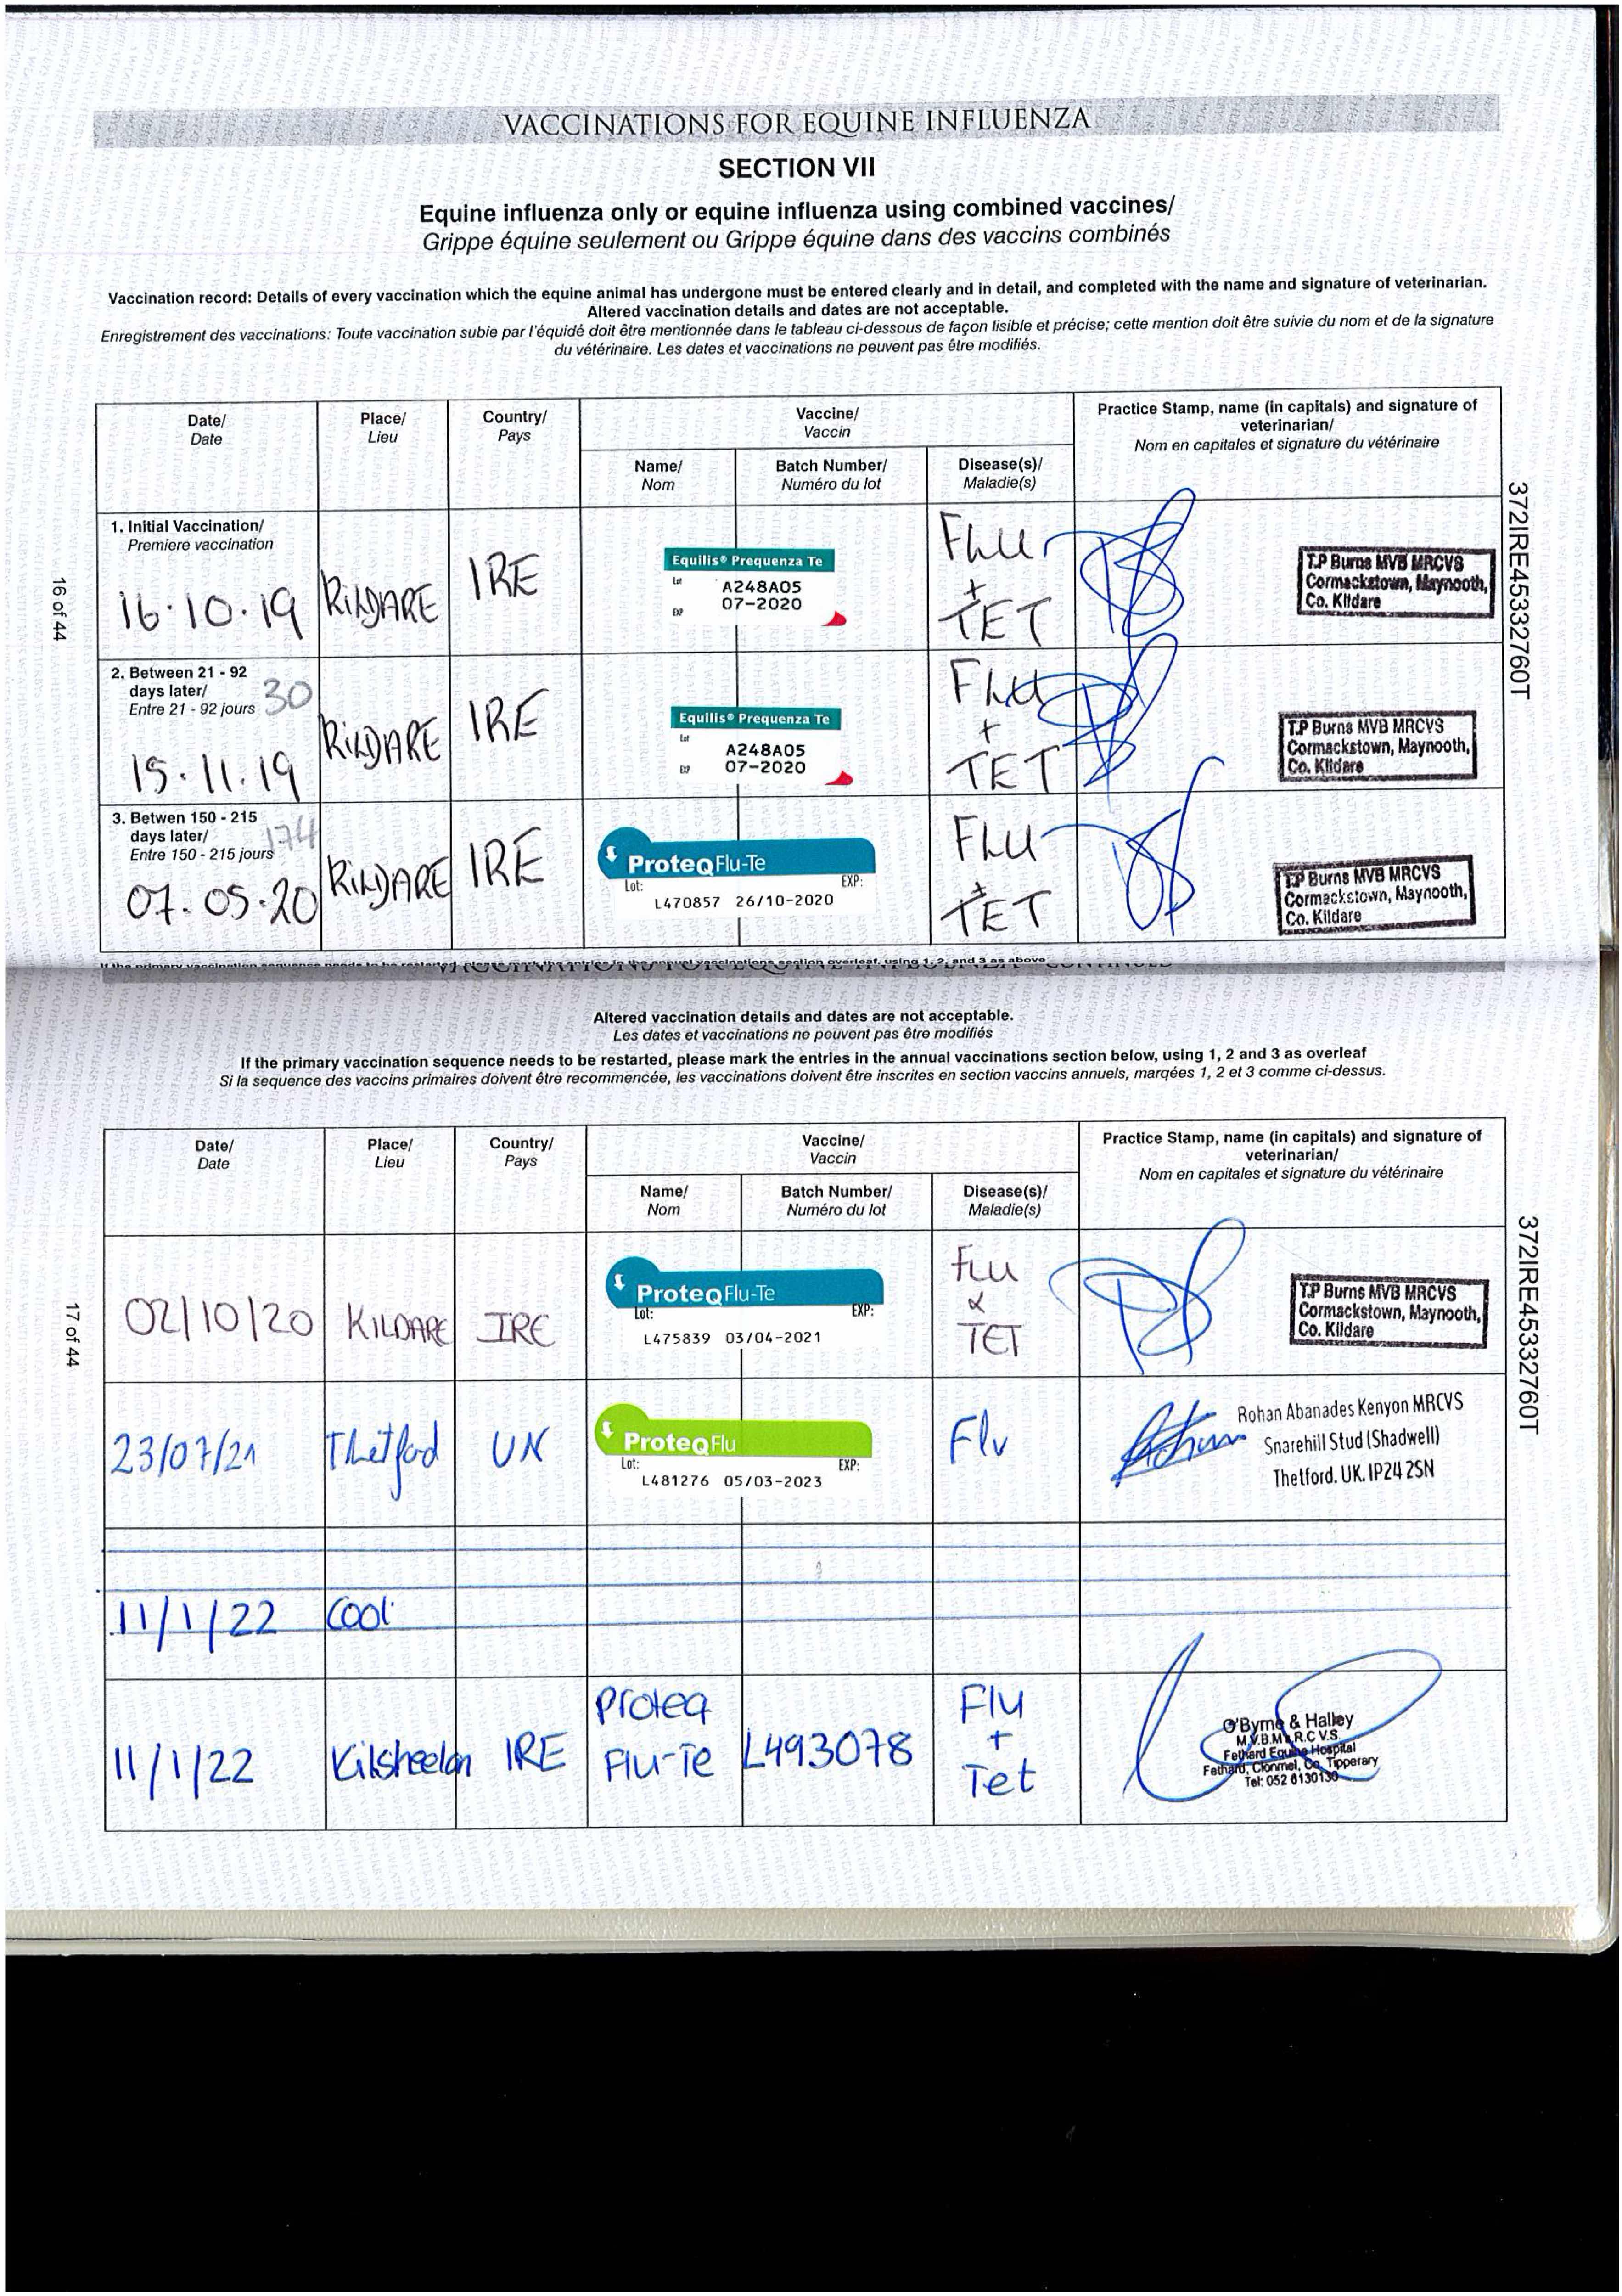 VACCINATIONS FOR EQUINE INFLUENZA
SECTION VII
Equine influenza only or equine influenza using combined vaccines/
Grippe équine seulement ou Grippe équine dans des vaccins combinés
Vaccination record: Details of every vaccination which the equine animal has undergone must be entered clearly and in detail, and completed with the name and signature of veterinarian.
Altered vaccination details and dates are not acceptable.
Enregistrement des vaccinations: Toute vaccination subie par l'équidé doit être mentionnée dans le tableau ci-dessous de façon lisible et précise; cette mention doit être suivie du nom et de la signature
du vétérinaire. Les dates et vaccinations ne peuvent pas être modifiés.
Date/
Date
Place/
Lieu
Country/
Pays
Vaccine/
Vaccin
Name/
Nom
Batch Number/
Numéro du lot
Disease(s)/
Maladie(s)
Practice Stamp, name (in capitals) and signature of
veterinarian/
Nom en capitales et signature du vétérinaire
1. Initial Vaccination/
Premiere vaccination
16.10.19
KILDARE
IRE
Equilis® Prequenza Te
Lot A248A05
EXP 07-2020
FLU
+
TET
T.P Burns MVB MRCVS
Cormackstown, Maynooth,
Co. Kildare
2. Between 21 - 92
days later/
Entre 21 - 92 jours
30
15.11.19
KILDARE
IRE
Equilis® Prequenza Te
Lot A248A05
EXP 07-2020
FLU
+
TET
T.P Burns MVB MRCVS
Cormackstown, Maynooth,
Co. Kildare
3. Betwen 150 - 215
days later/
Entre 150 - 215 jours
174
07.05.20
KILDARE
IRE
ProteqFlu-Te
Lot: EXP:
L470857 26/10-2020
FLU
+
TET
T.P Burns MVB MRCVS
Cormackstown, Maynooth,
Co. Kildare
16 of 44
372IRE45332760T
If the primary vaccination sequence needs to be restarted, please mark the entries in the annual vaccinations section overleaf, using 1, 2, and 3 as above
Altered vaccination details and dates are not acceptable.
Les dates et vaccinations ne peuvent pas être modifiés
If the primary vaccination sequence needs to be restarted, please mark the entries in the annual vaccinations section below, using 1, 2 and 3 as overleaf
Si la sequence des vaccins primaires doivent être recommencée, les vaccinations doivent être inscrites en section vaccins annuels, marqées 1, 2 et 3 comme ci-dessus.
Date/
Date
Place/
Lieu
Country/
Pays
Vaccine/
Vaccin
Name/
Nom
Batch Number/
Numéro du lot
Disease(s)/
Maladie(s)
Practice Stamp, name (in capitals) and signature of
veterinarian/
Nom en capitales et signature du vétérinaire
02/10/20
KILDARE
IRE
ProteqFlu-Te
Lot: EXP:
L475839 03/04-2021
FLU
&
TET
T.P Burns MVB MRCVS
Cormackstown, Maynooth,
Co. Kildare
23/07/21
Thetford
UK
ProteqFlu
Lot: EXP:
L481276 05/03-2023
Flu
Rohan Abanades Kenyon MRCVS
Snarehill Stud (Shadwell)
Thetford. UK. IP24 2SN
11/1/22
Cool
11/1/22
Kilsheelan
IRE
Proteq
Flu-Te
L493078
Flu
+
Tet
O'Byrne & Halley
M.V.B.M.R.C.V.S.
Fethard Equine Hospital
Fethard, Clonmel, Co. Tipperary
Tel: 052 6130130
17 of 44
372IRE45332760T